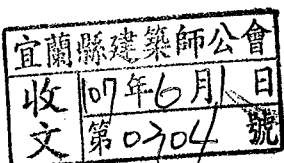 宜蘭縣建築師公會
收文
107年6月1日
第0304號